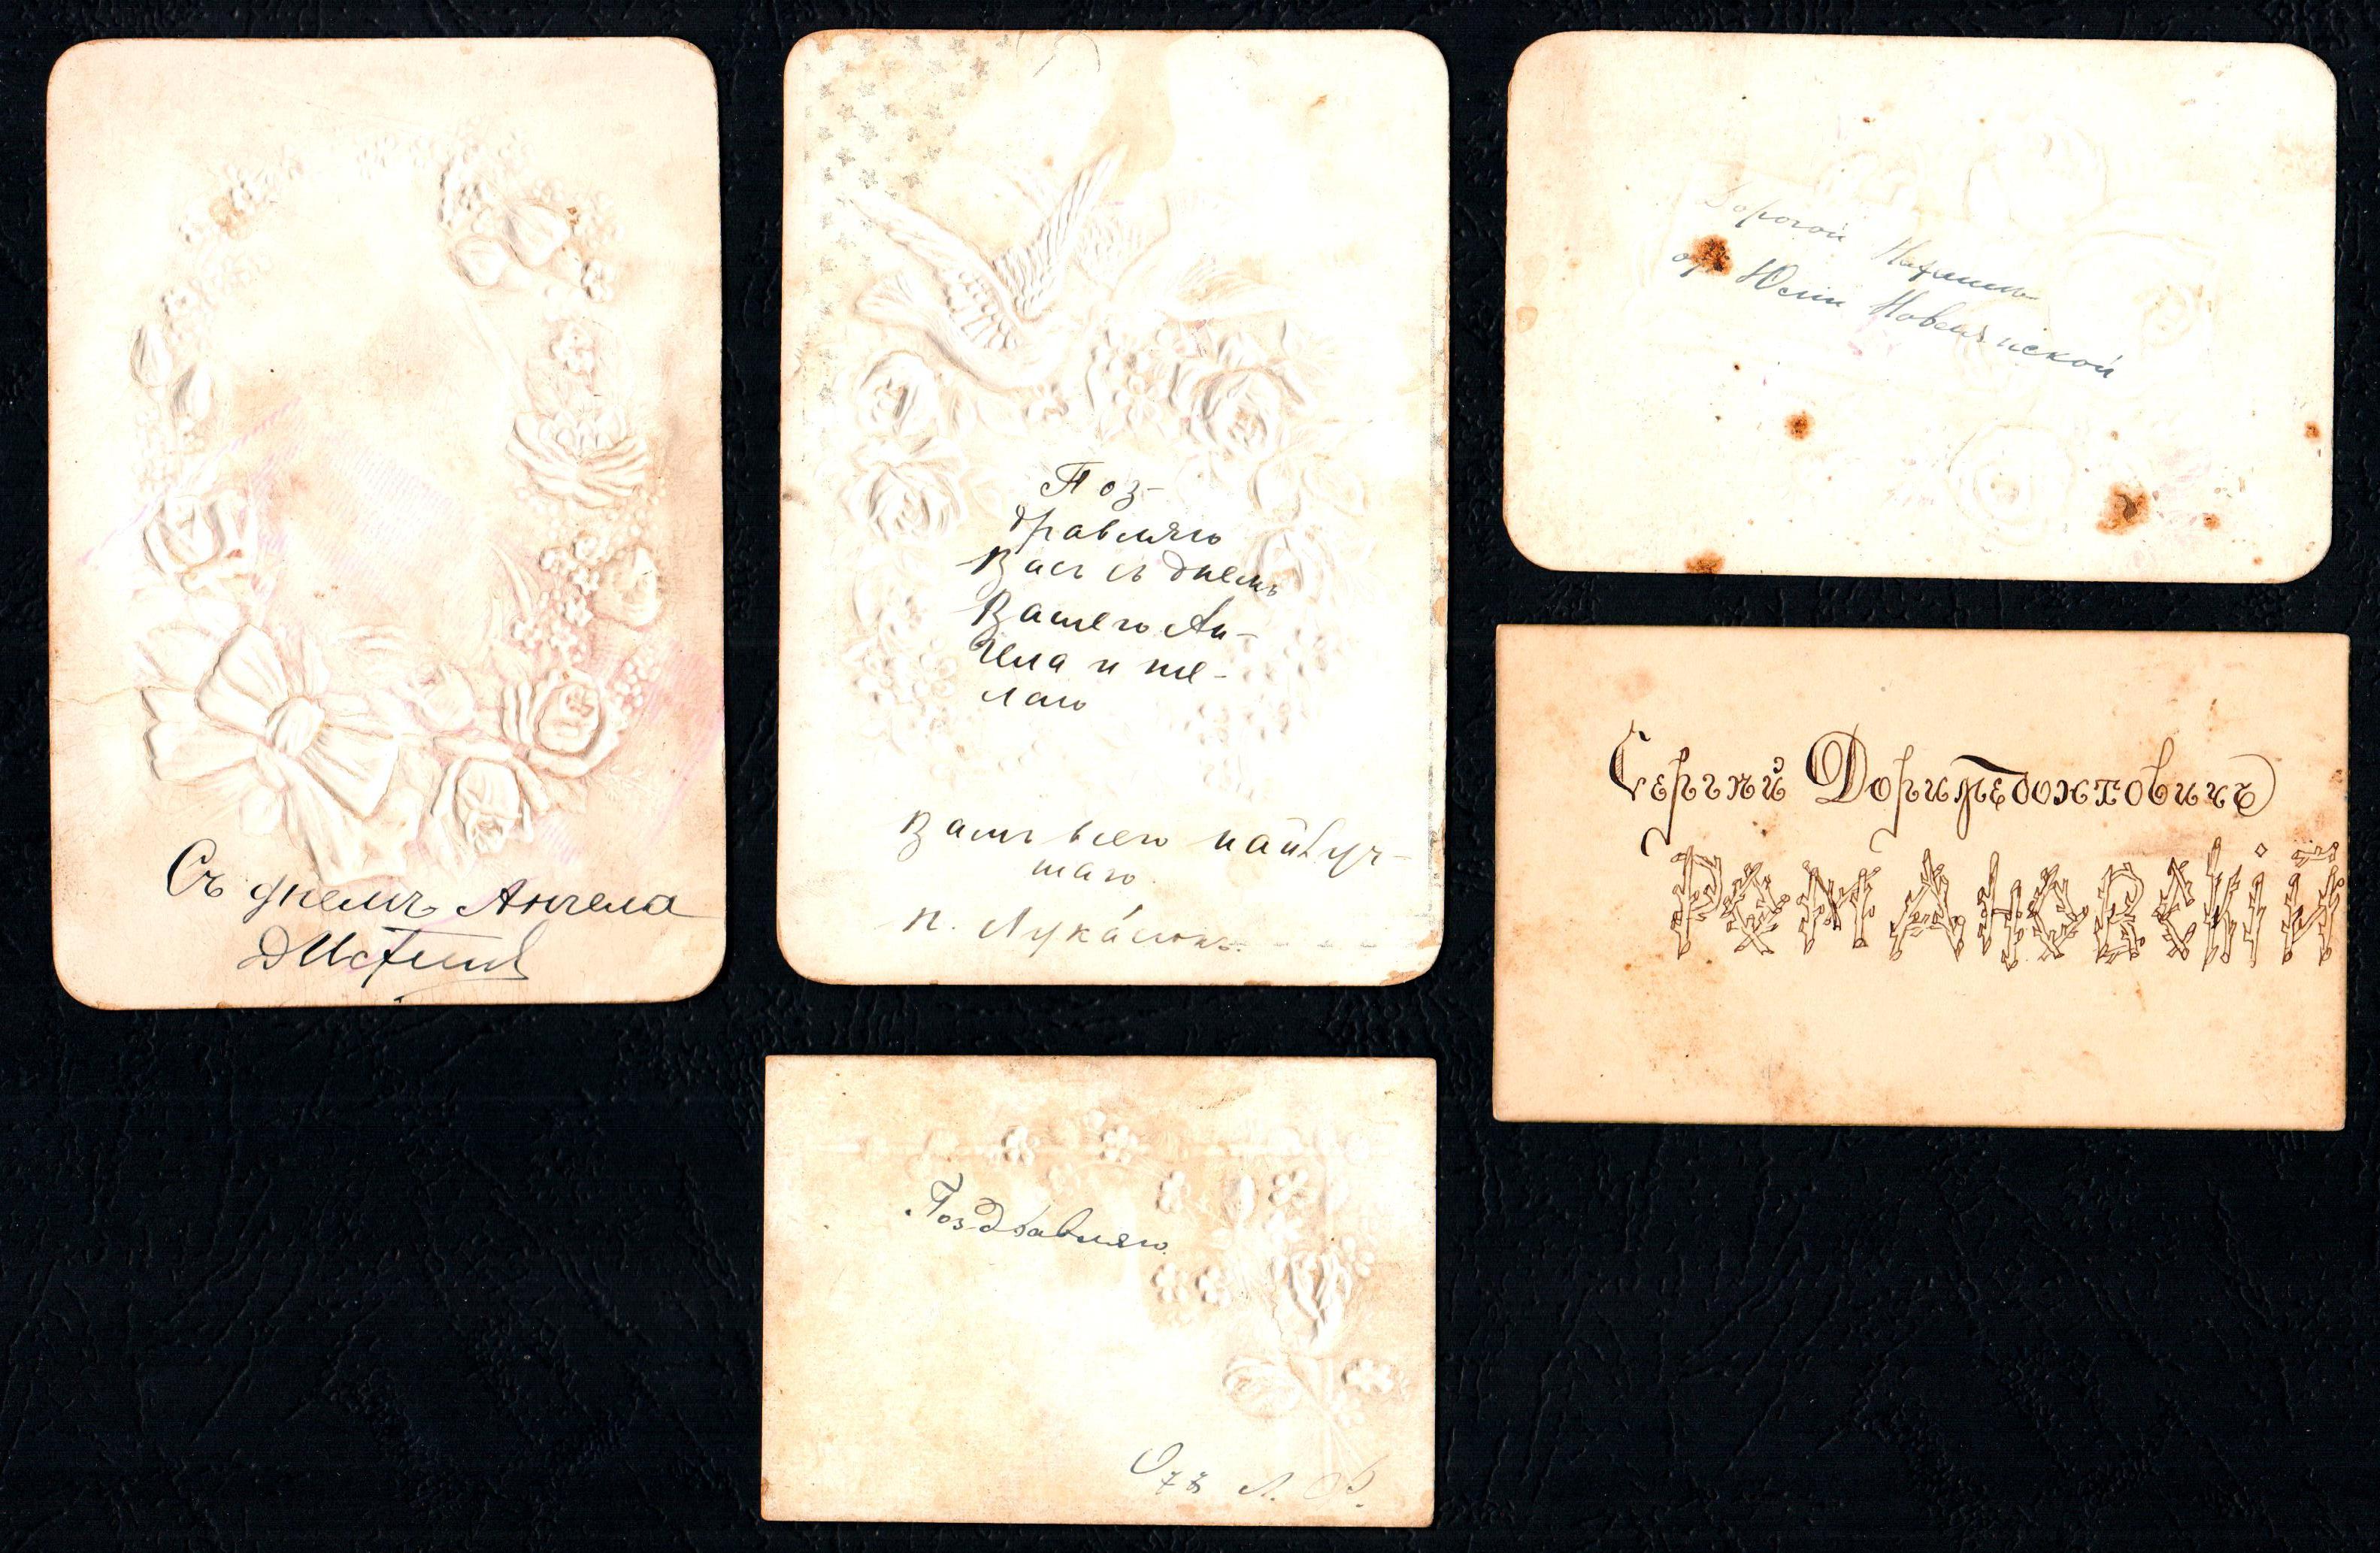 Съ днемъ Ангела
Поз-
дравляю
Васъ съ днемъ
Вашего Ан-
гела и же-
лаю
Вамъ всего найлуч-
шаго.
П. Лукáсюкъ.
Дорогой Наташѣ
отъ Юліи Новел
Сергѣй Дориμедонтовичъ
РАМАНОВСКІЙ
Поздравляю.
Отъ Л. Ф.